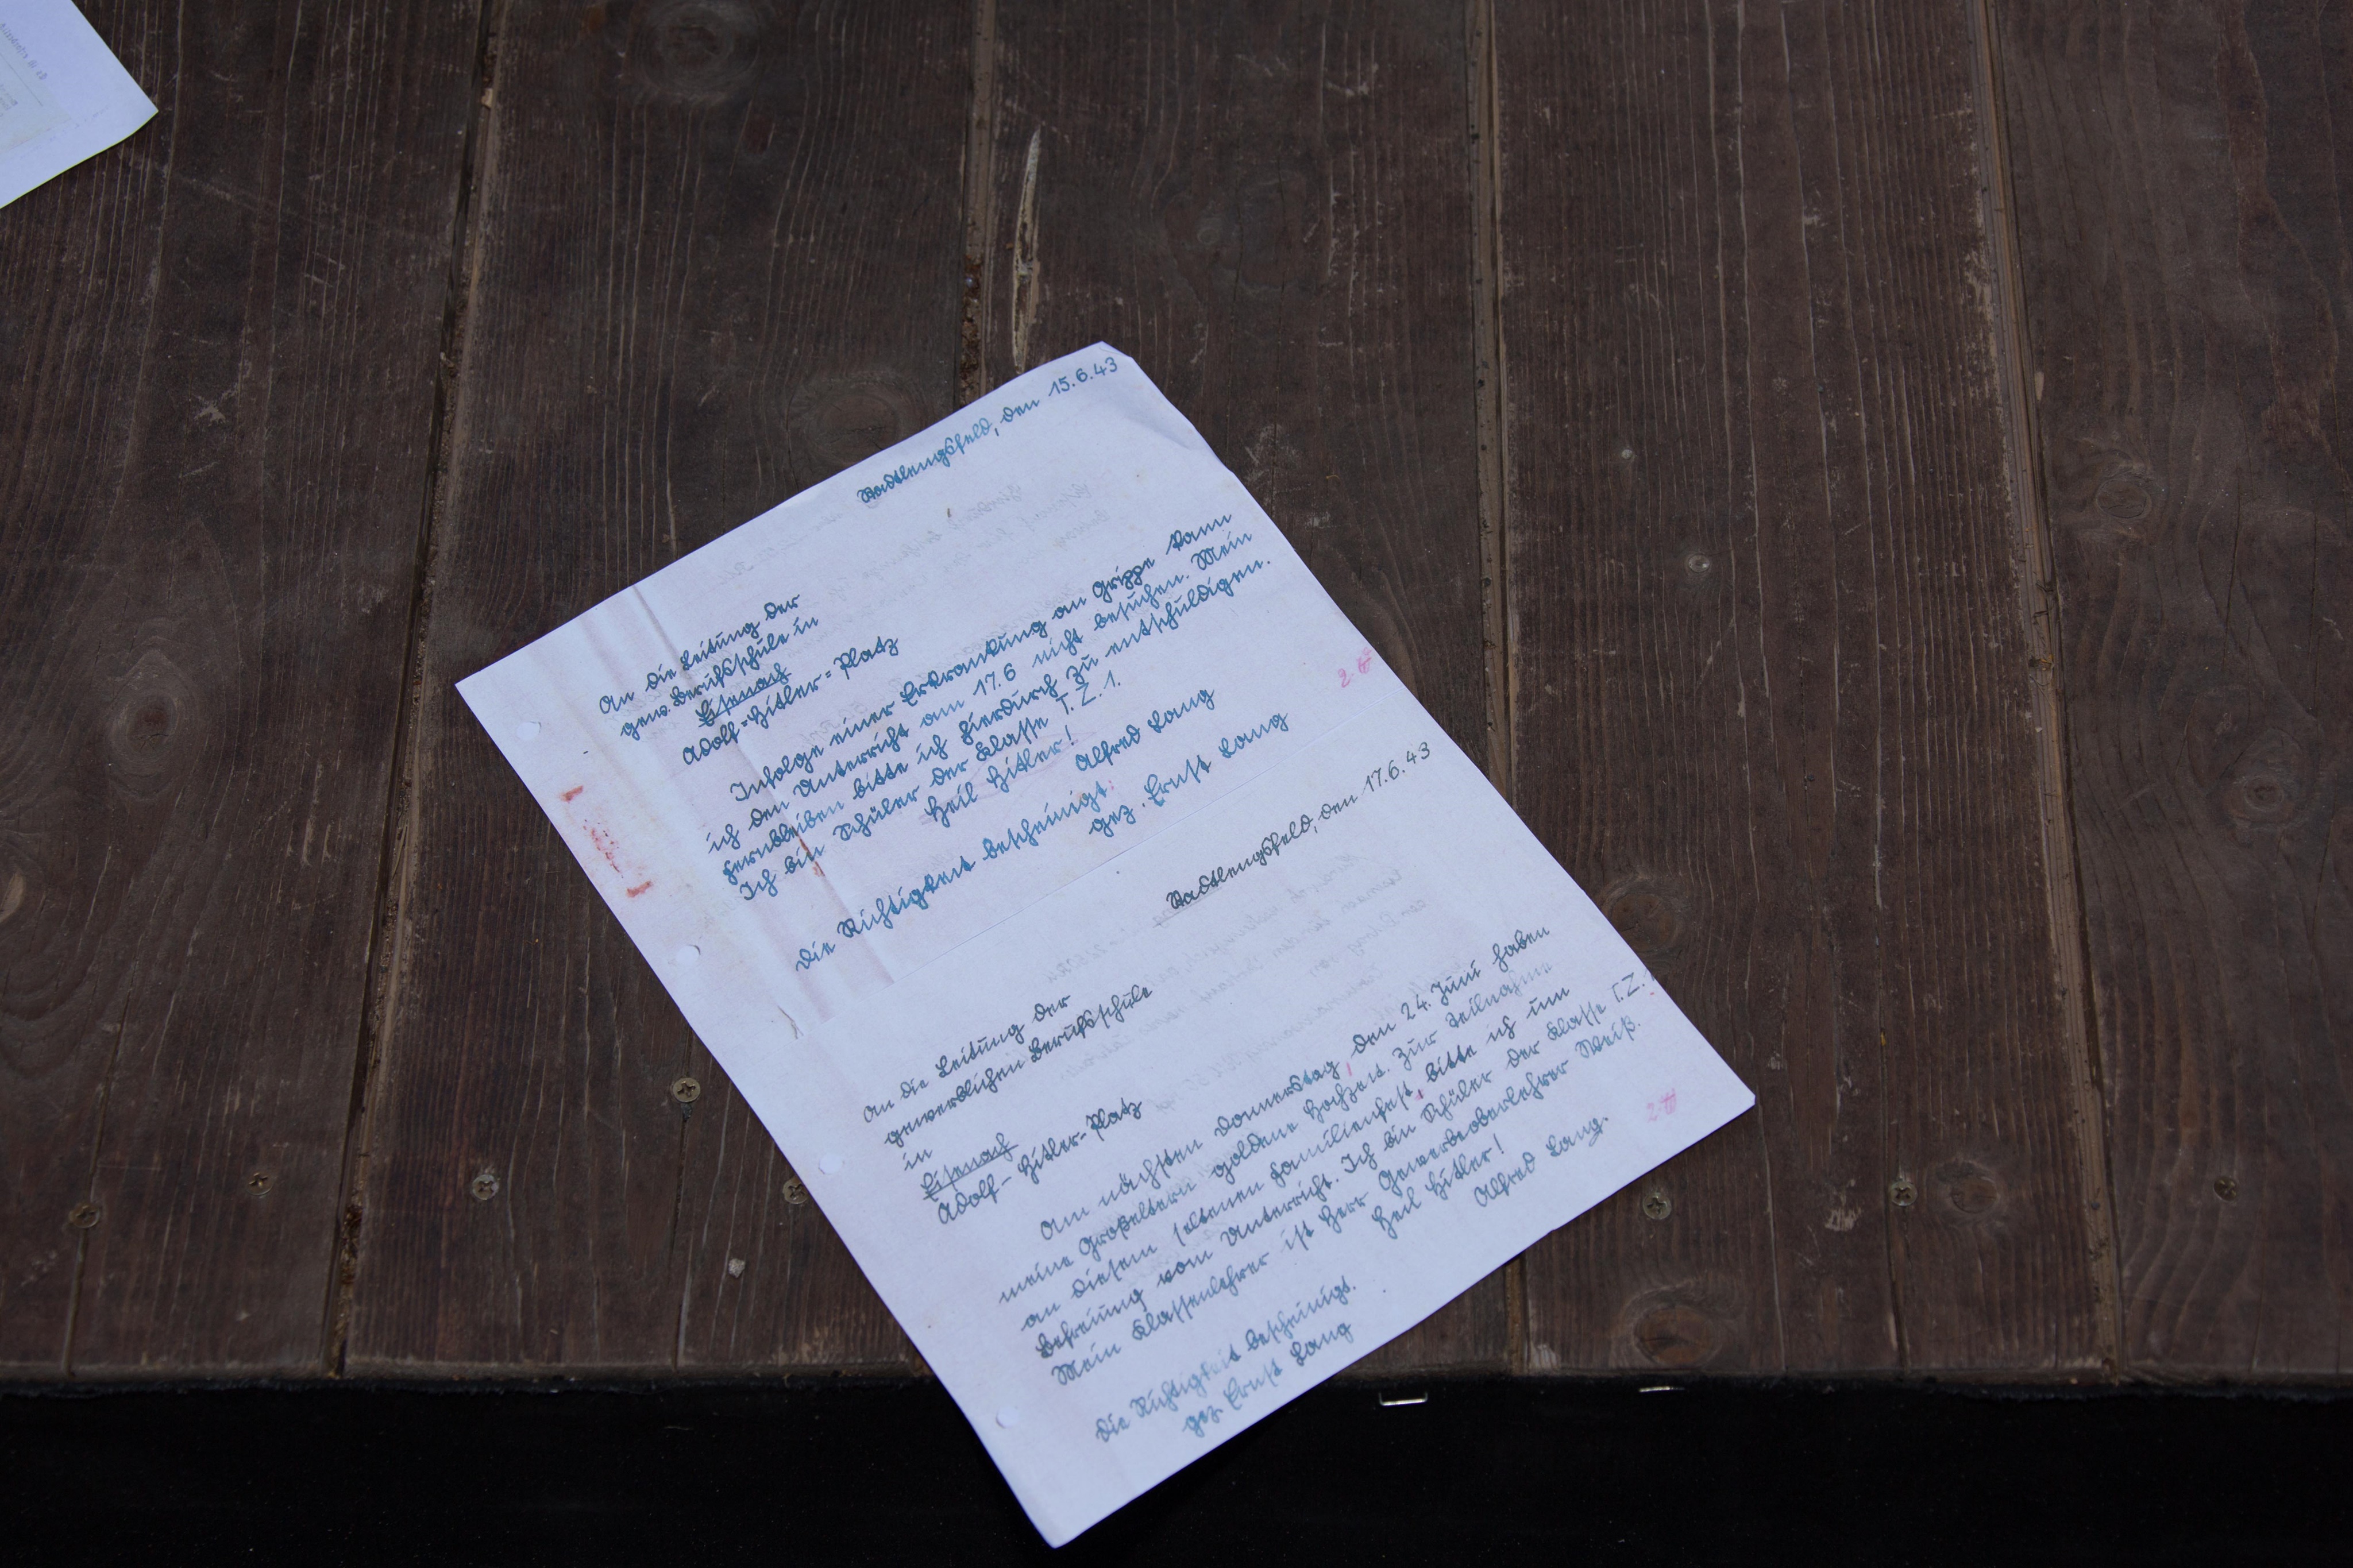 Stadtlengsfeld, den 15.6.43
An die Leitung der
gew. Berufsschule in
Eisenach
Adolf-Hitler-Platz
Infolge einer Erkrankung an Grippe kann
ich den Unterricht am 17.6 nicht besuchen. Mein
Fernbleiben bitte ich hierdurch zu entschuldigen.
Ich bin Schüler der Klasse T.Z.1.
Heil Hitler!
Alfred Lang
Die Richtigkeit bescheinigt:
gez. Ernst Lang
Stadtlengsfeld, den 17.6.43
An die Leitung der
gewerblichen Berufsschule
in
Eisenach
Adolf-Hitler-Platz
Am nächsten Donnerstag, den 24. Juni haben
meine Großeltern goldene Hochzeit. Zur Teilnahme
an diesem seltenen Familienfest, bitte ich um
Befreiung vom Unterricht. Ich bin Schüler der Klasse T.Z.
Mein Klassenlehrer ist Herr Gewerbeoberlehrer Weiß.
Heil Hitler!
Alfred Lang.
Die Richtigkeit bescheinigt.
gez. Ernst Lang